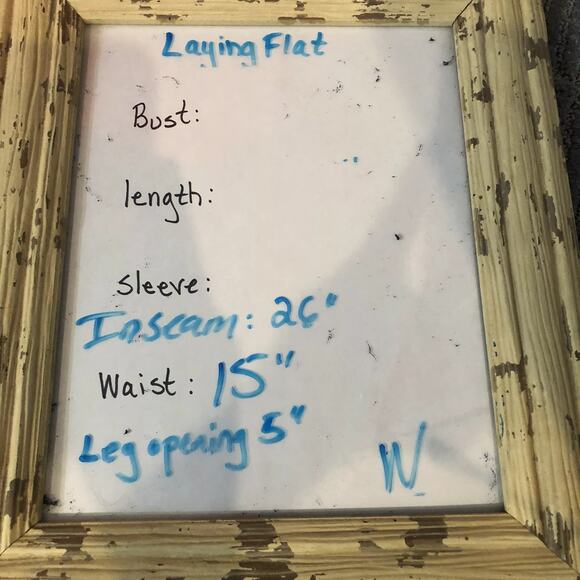 Laying Flat
Bust:
length:
Sleeve:
Inseam: 26"
Waist: 15"
Leg opening 5"
W